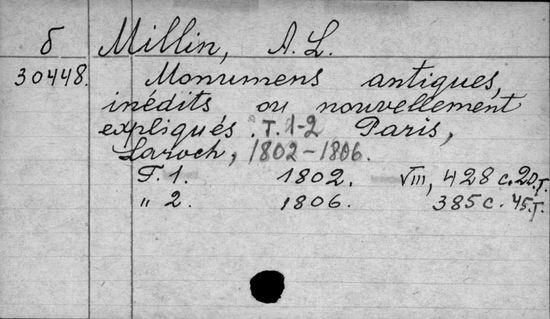 б Millin, A. L.
30448. Monumens antiques,
inédits ou nouvellement
expliqués. T. 1-2 Paris,
Laroch, 1802-1806.
T. 1. 1802. VIII, 428 с. 20 т.
„ 2. 1806. 385 с. 45 т.